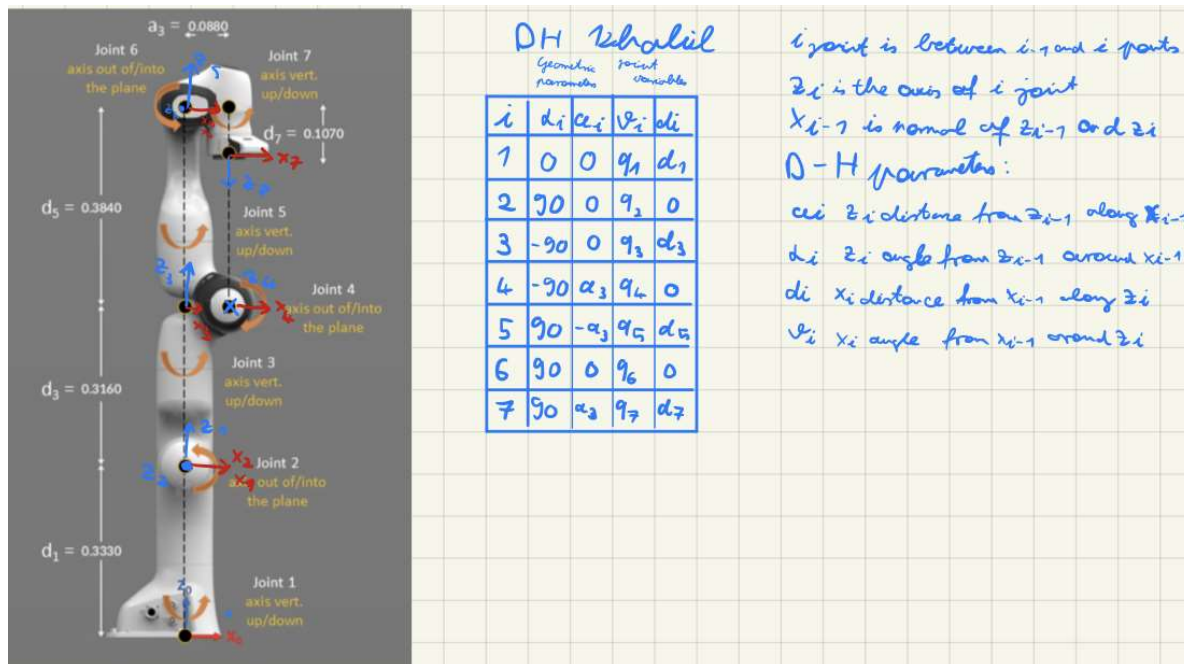 a₃ = 0.0880
Joint 6
axis out of/into
the plane
Joint 7
axis vert.
up/down
d₇ = 0.1070
x₇
z₇
z₅
d₅ = 0.3840
Joint 5
axis vert.
up/down
z₃
x₃
z₄
x₄
Joint 4
axis out of/into
the plane
d₃ = 0.3160
Joint 3
axis vert.
up/down
z₁
z₂
x₂
x₁
Joint 2
axis out of/into
the plane
d₁ = 0.3330
Joint 1
axis vert.
up/down
z₀
x₀
DH Khalil
Geometric parameters
joint variables
i αi ai ϑi di
1 0 0 q₁ d₁
2 90 0 q₂ 0
3 -90 0 q₃ d₃
4 -90 a₃ q₄ 0
5 90 -a₃ q₅ d₅
6 90 0 q₆ 0
7 90 a₃ q₇ d₇
i joint is between i-1 and i points
zi is the axis of i joint
xi-1 is normal of zi-1 and zi
D-H parameters:
ai zi distance from zi-1 along xi-1
αi zi angle from zi-1 around xi-1
di xi distance from xi-1 along zi
ϑi xi angle from xi-1 around zi